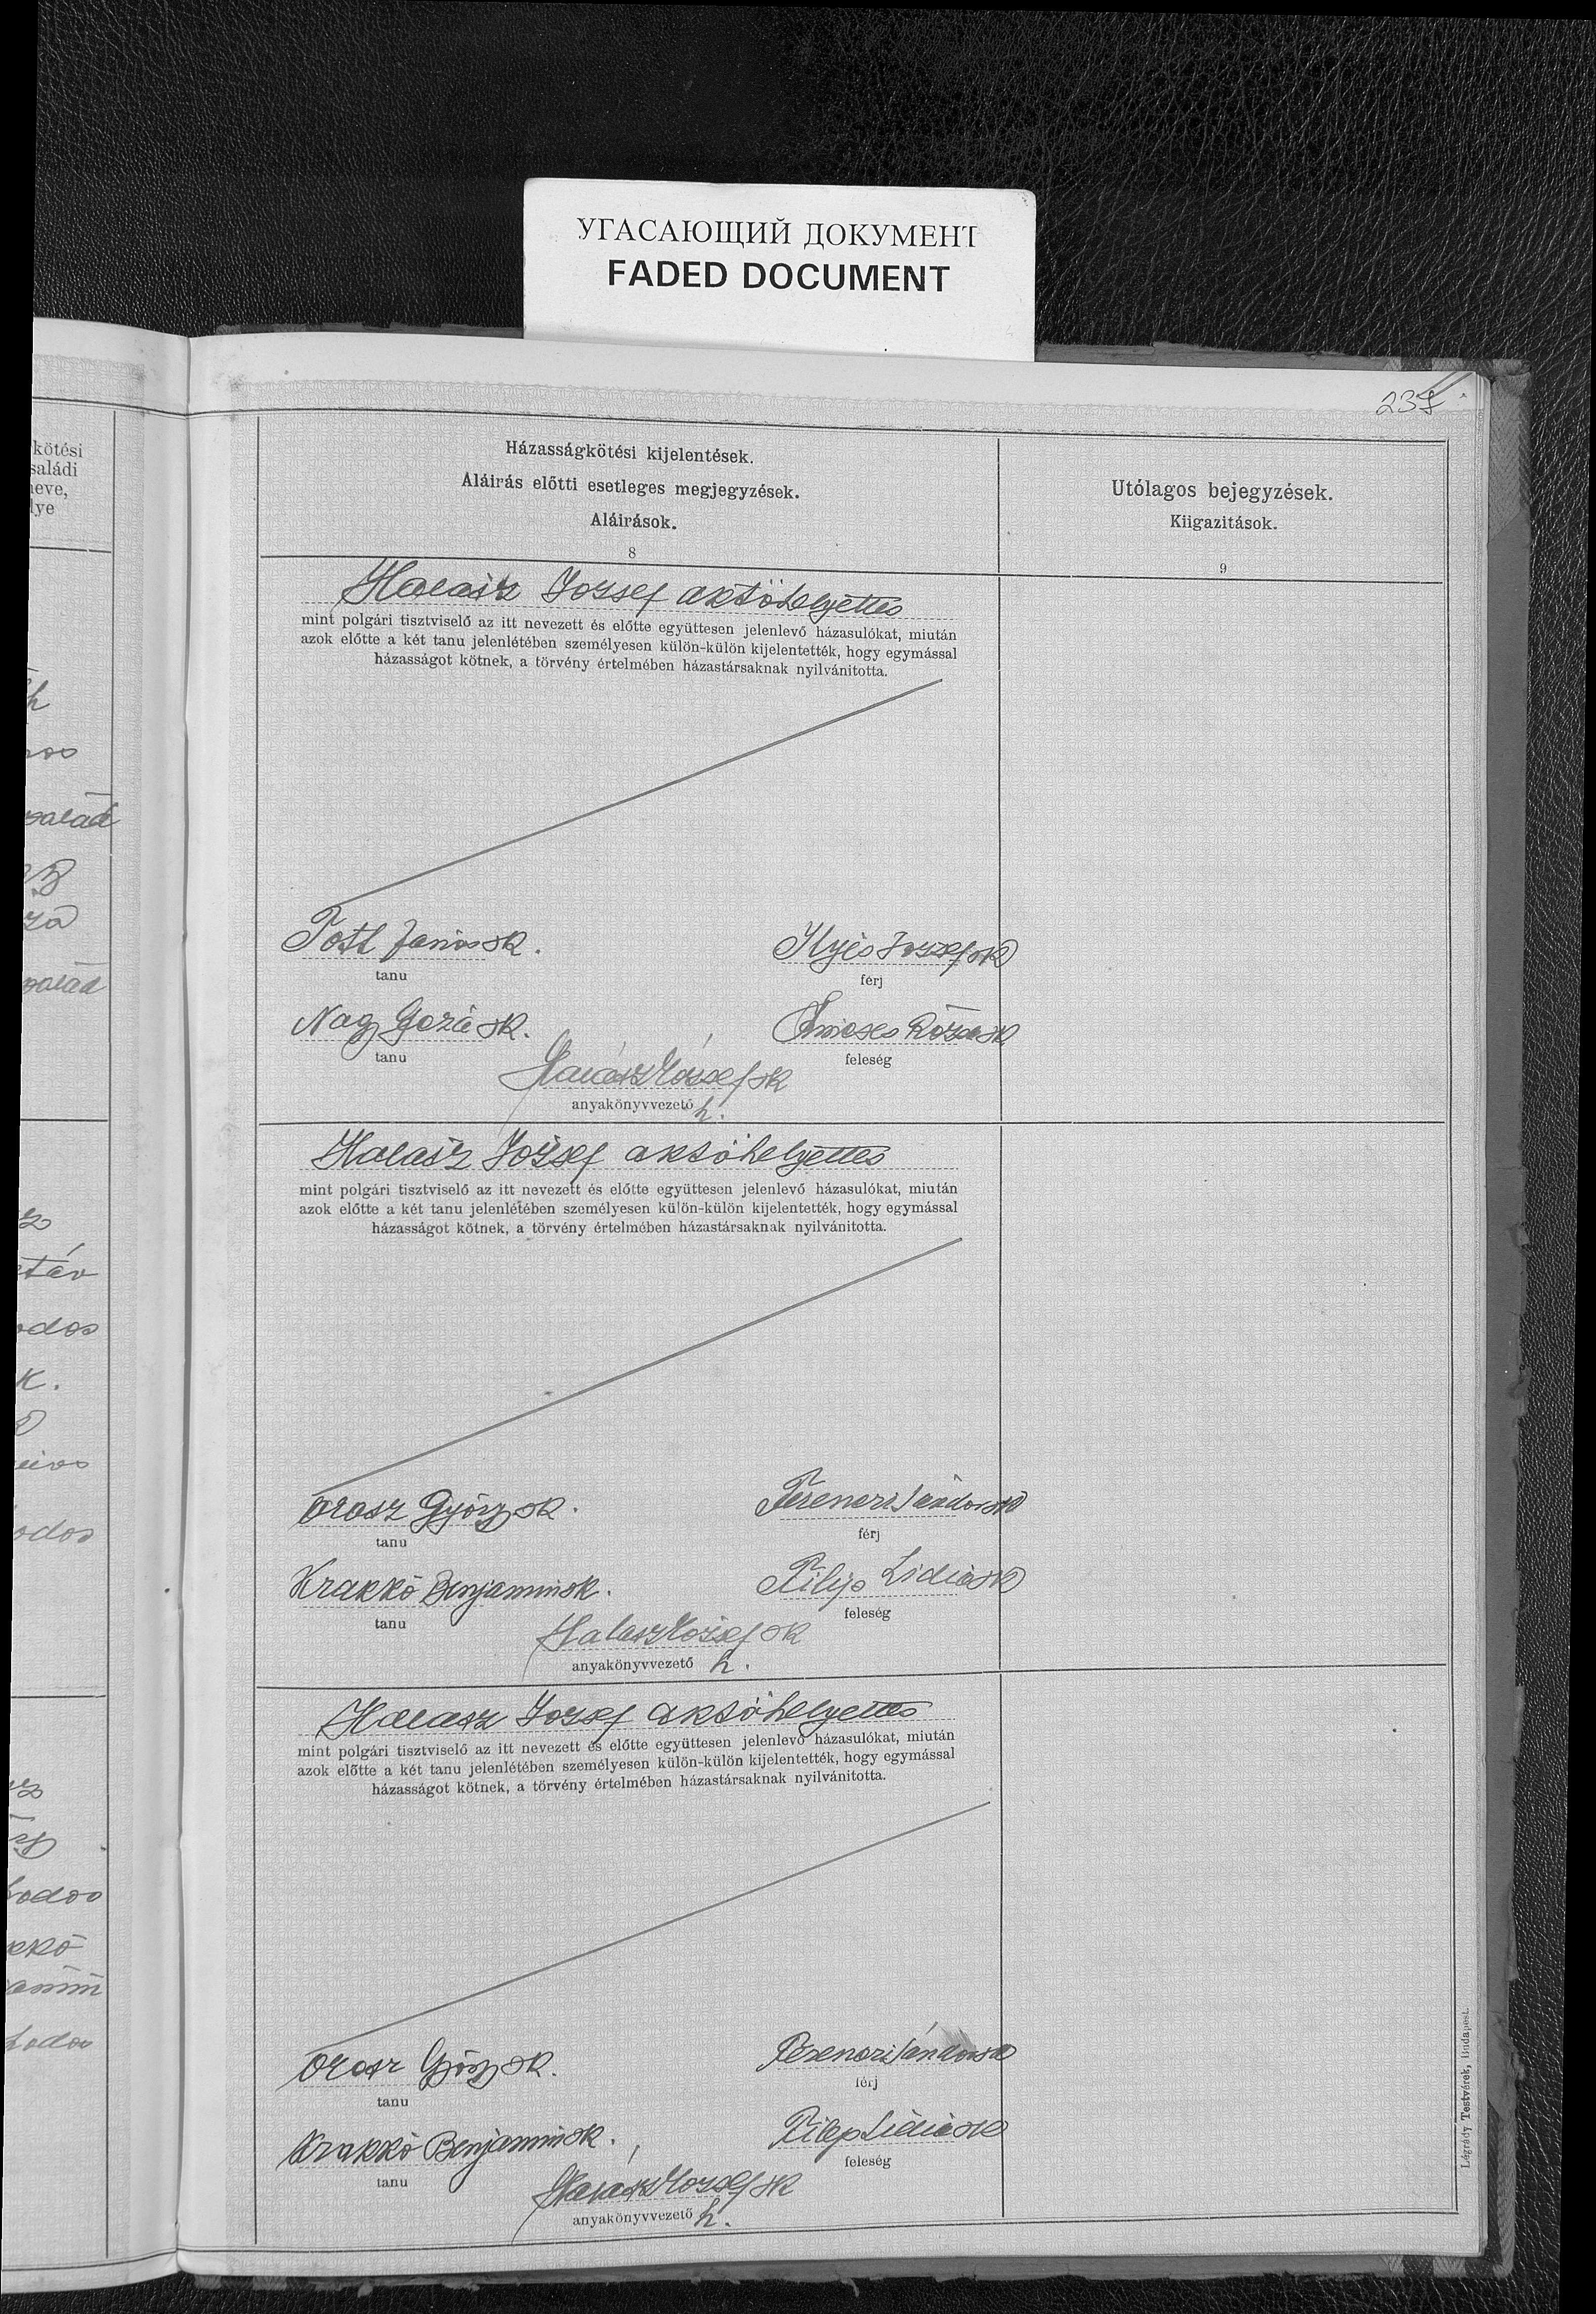 УГАСАЮЩИЙ ДОКУМЕНТ
FADED DOCUMENT
kötési
saládi
neve,
lye
h
ros
salád
za
salád
táv
odos
K.
odos
kodos
kkó
amin
Házasságkötési kijelentések.
Aláirás előtti esetleges megjegyzések.
Aláirások.
8
Utólagos bejegyzések.
Kiigazitások.
9
Halász József aktöhelyettes
mint polgári tisztviselő az itt nevezett és előtte együttesen jelenlevő házasulókat, miután
azok előtte a két tanu jelenlétében személyesen külön-külön kijelentették, hogy egymással
házasságot kötnek, a törvény értelmében házastársaknak nyilvánitotta.
Tott János sk.
tanu
Ilyés József sk
férj
Nagy Géza sk.
tanu
Rózsa sk
feleség
Halász József sk
anyakönyvvezető h.
Halász József aktöhelyettes
mint polgári tisztviselő az itt nevezett és előtte együttesen jelenlevő házasulókat, miután
azok előtte a két tanu jelenlétében személyesen külön-külön kijelentették, hogy egymással
házasságot kötnek, a törvény értelmében házastársaknak nyilvánitotta.
Orosz György sk.
tanu
Ferenczi Sándor sk
férj
Krakkó Benjamin sk.
tanu
Filip Lidia sk
feleség
Halász József sk
anyakönyvvezető h.
Halász József aktöhelyettes
mint polgári tisztviselő az itt nevezett és előtte együttesen jelenlevő házasulókat, miután
azok előtte a két tanu jelenlétében személyesen külön-külön kijelentették, hogy egymással
házasságot kötnek, a törvény értelmében házastársaknak nyilvánitotta.
Orosz György sk.
tanu
Ferenczi Sándor sk
férj
Krakkó Benjamin sk.
tanu
Filep Lidia sk
feleség
Halász József sk
anyakönyvvezető h.
Légrády Testvérek, Budapest.